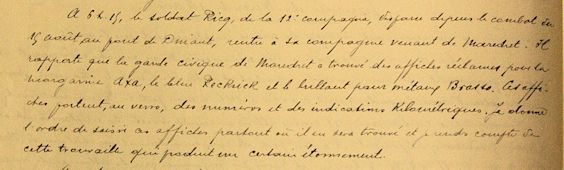 A 6h.15, le soldat Ricq, de la 12e compagnie, disparu depuis le combat du
15 août au pont de Dinant, rentre à sa compagnie venant de Maredret. Il
rapporte que la garde civique de Maredret a trouvé des affiches réclames pour la
margarine Axa, le bleu Reckick et le brillant pour métaux Brasso. Ces affi-
ches portent, au verso, des numéros et des indications kilométriques. Je donne
l'ordre de saisir ces affiches partout où il en sera trouvé et je rends compte de
cette trouvaille qui produit un certain étonnement.